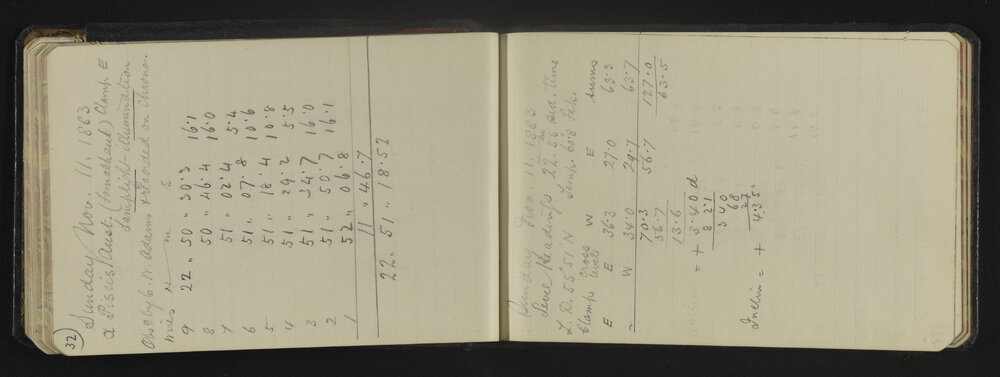 32
Sunday Nov. 11. 1883
α Piscis Aust. (Fomalhaut) Clamp E
Lamplight illumination
Obsd by C. W. Adams & recorded on Chrono.
Wires h m s
9 22 „ 50 „ 30.3 16.1
8 50 „ 46.4 16.0
7 51 „ 02.4 5.4
6 51 „ 07.8 10.6
5 51 „ 18.4 10.8
4 51 „ 29.2 5.5
3 51 „ 34.7 16.0
2 51 „ 50.7 16.1
1 52 „ 06.8
11 „ 46.7
22. 51 „ 18.52
Sunday Nov. 11. 1883
Level Readings 22.55 sid. time
L.D. 55°51 N Temp. 60.8 Fah.
Clamps Cross levels W E Sums
E E 36.3 27.0 63.3
~ W 34.0 29.7 63.7
70.3 56.7 127.0
56.7 63.5
13.6
= + 3.40 d
340
68
27
Inclin = + 4.35